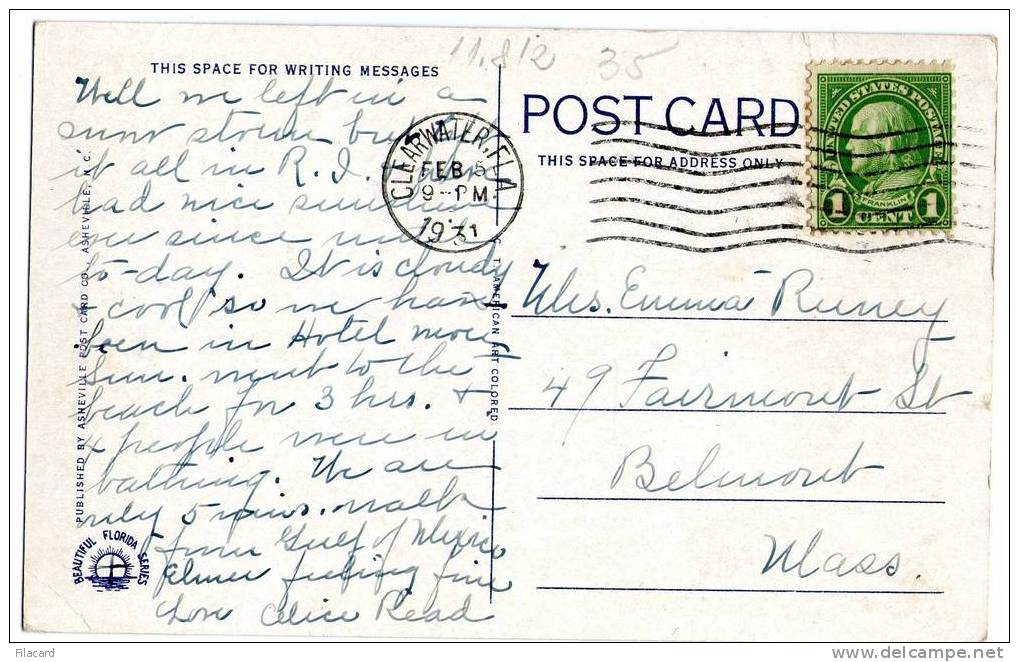 11.812 35
THIS SPACE FOR WRITING MESSAGES
POST CARD
THIS SPACE FOR ADDRESS ONLY
CLEARWATER, FLA.
FEB 5
9-PM
1931
UNITED STATES POSTAGE
FRANKLIN
1 CENT 1
Well we left in a
snow storm but left
it all in R. I. Have
had nice sunshine
ever since until
to-day. It is cloudy
& cool so we have
been in Hotel more
Sun. went to the
beach for 3 hrs. &
4 people were in
bathing. We are
only 5 mins. walk
from Gulf of Mexico
Elmer feeling fine
Love Alice Read
Mrs. Emma
49 Fairmount St
Belmont
Mass.
PUBLISHED BY ASHEVILLE POST CARD CO., ASHEVILLE, N. C.
C. T. AMERICAN ART COLORED
BEAUTIFUL FLORIDA SERIES
Filacard
www.delcampe.net